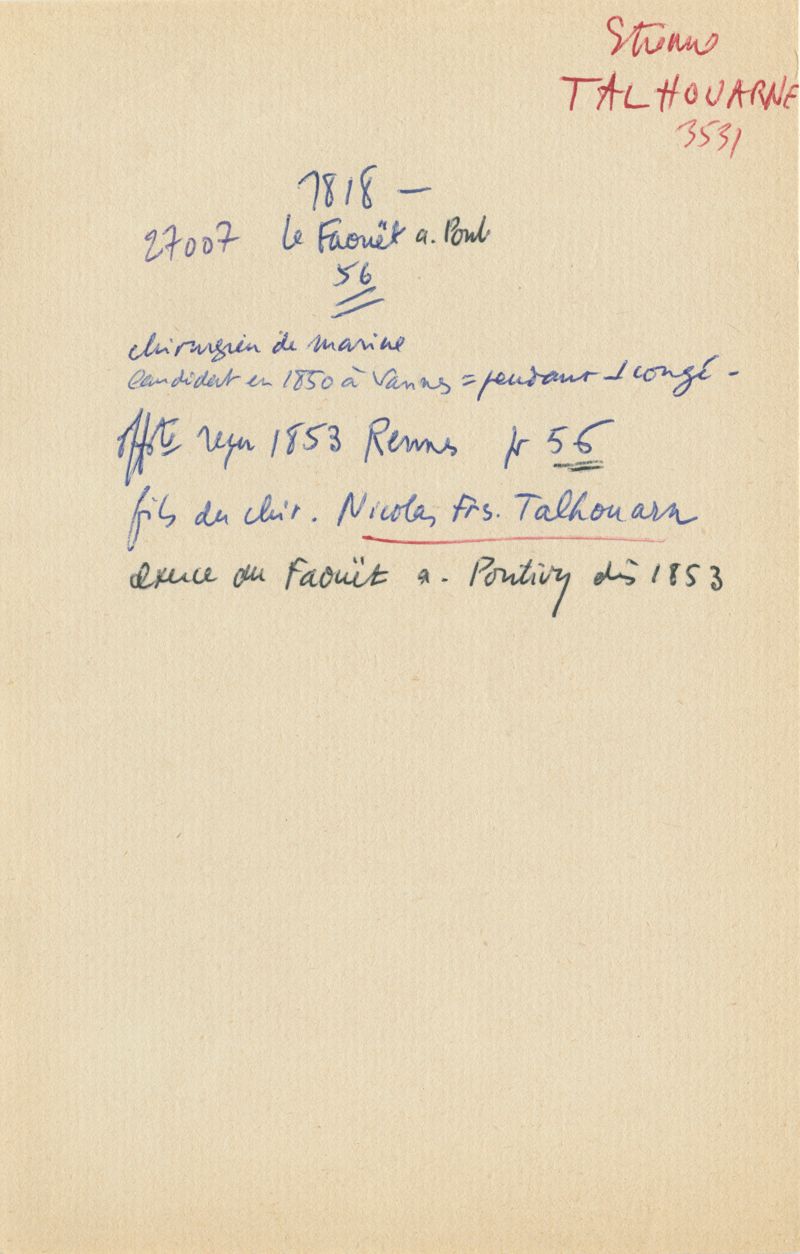 Etienne
TALHOUARNE
3531
1818 —
27007 le Faouët a. Pont
56
chirurgien de marine
Candidat en 1850 à Vannes = pendant 1 congé -
reçu 1853 Rennes pr 56
fils du chir. Nicolas Frs. Talhouarn
exerce au Faouët a. Pontivy dès 1853